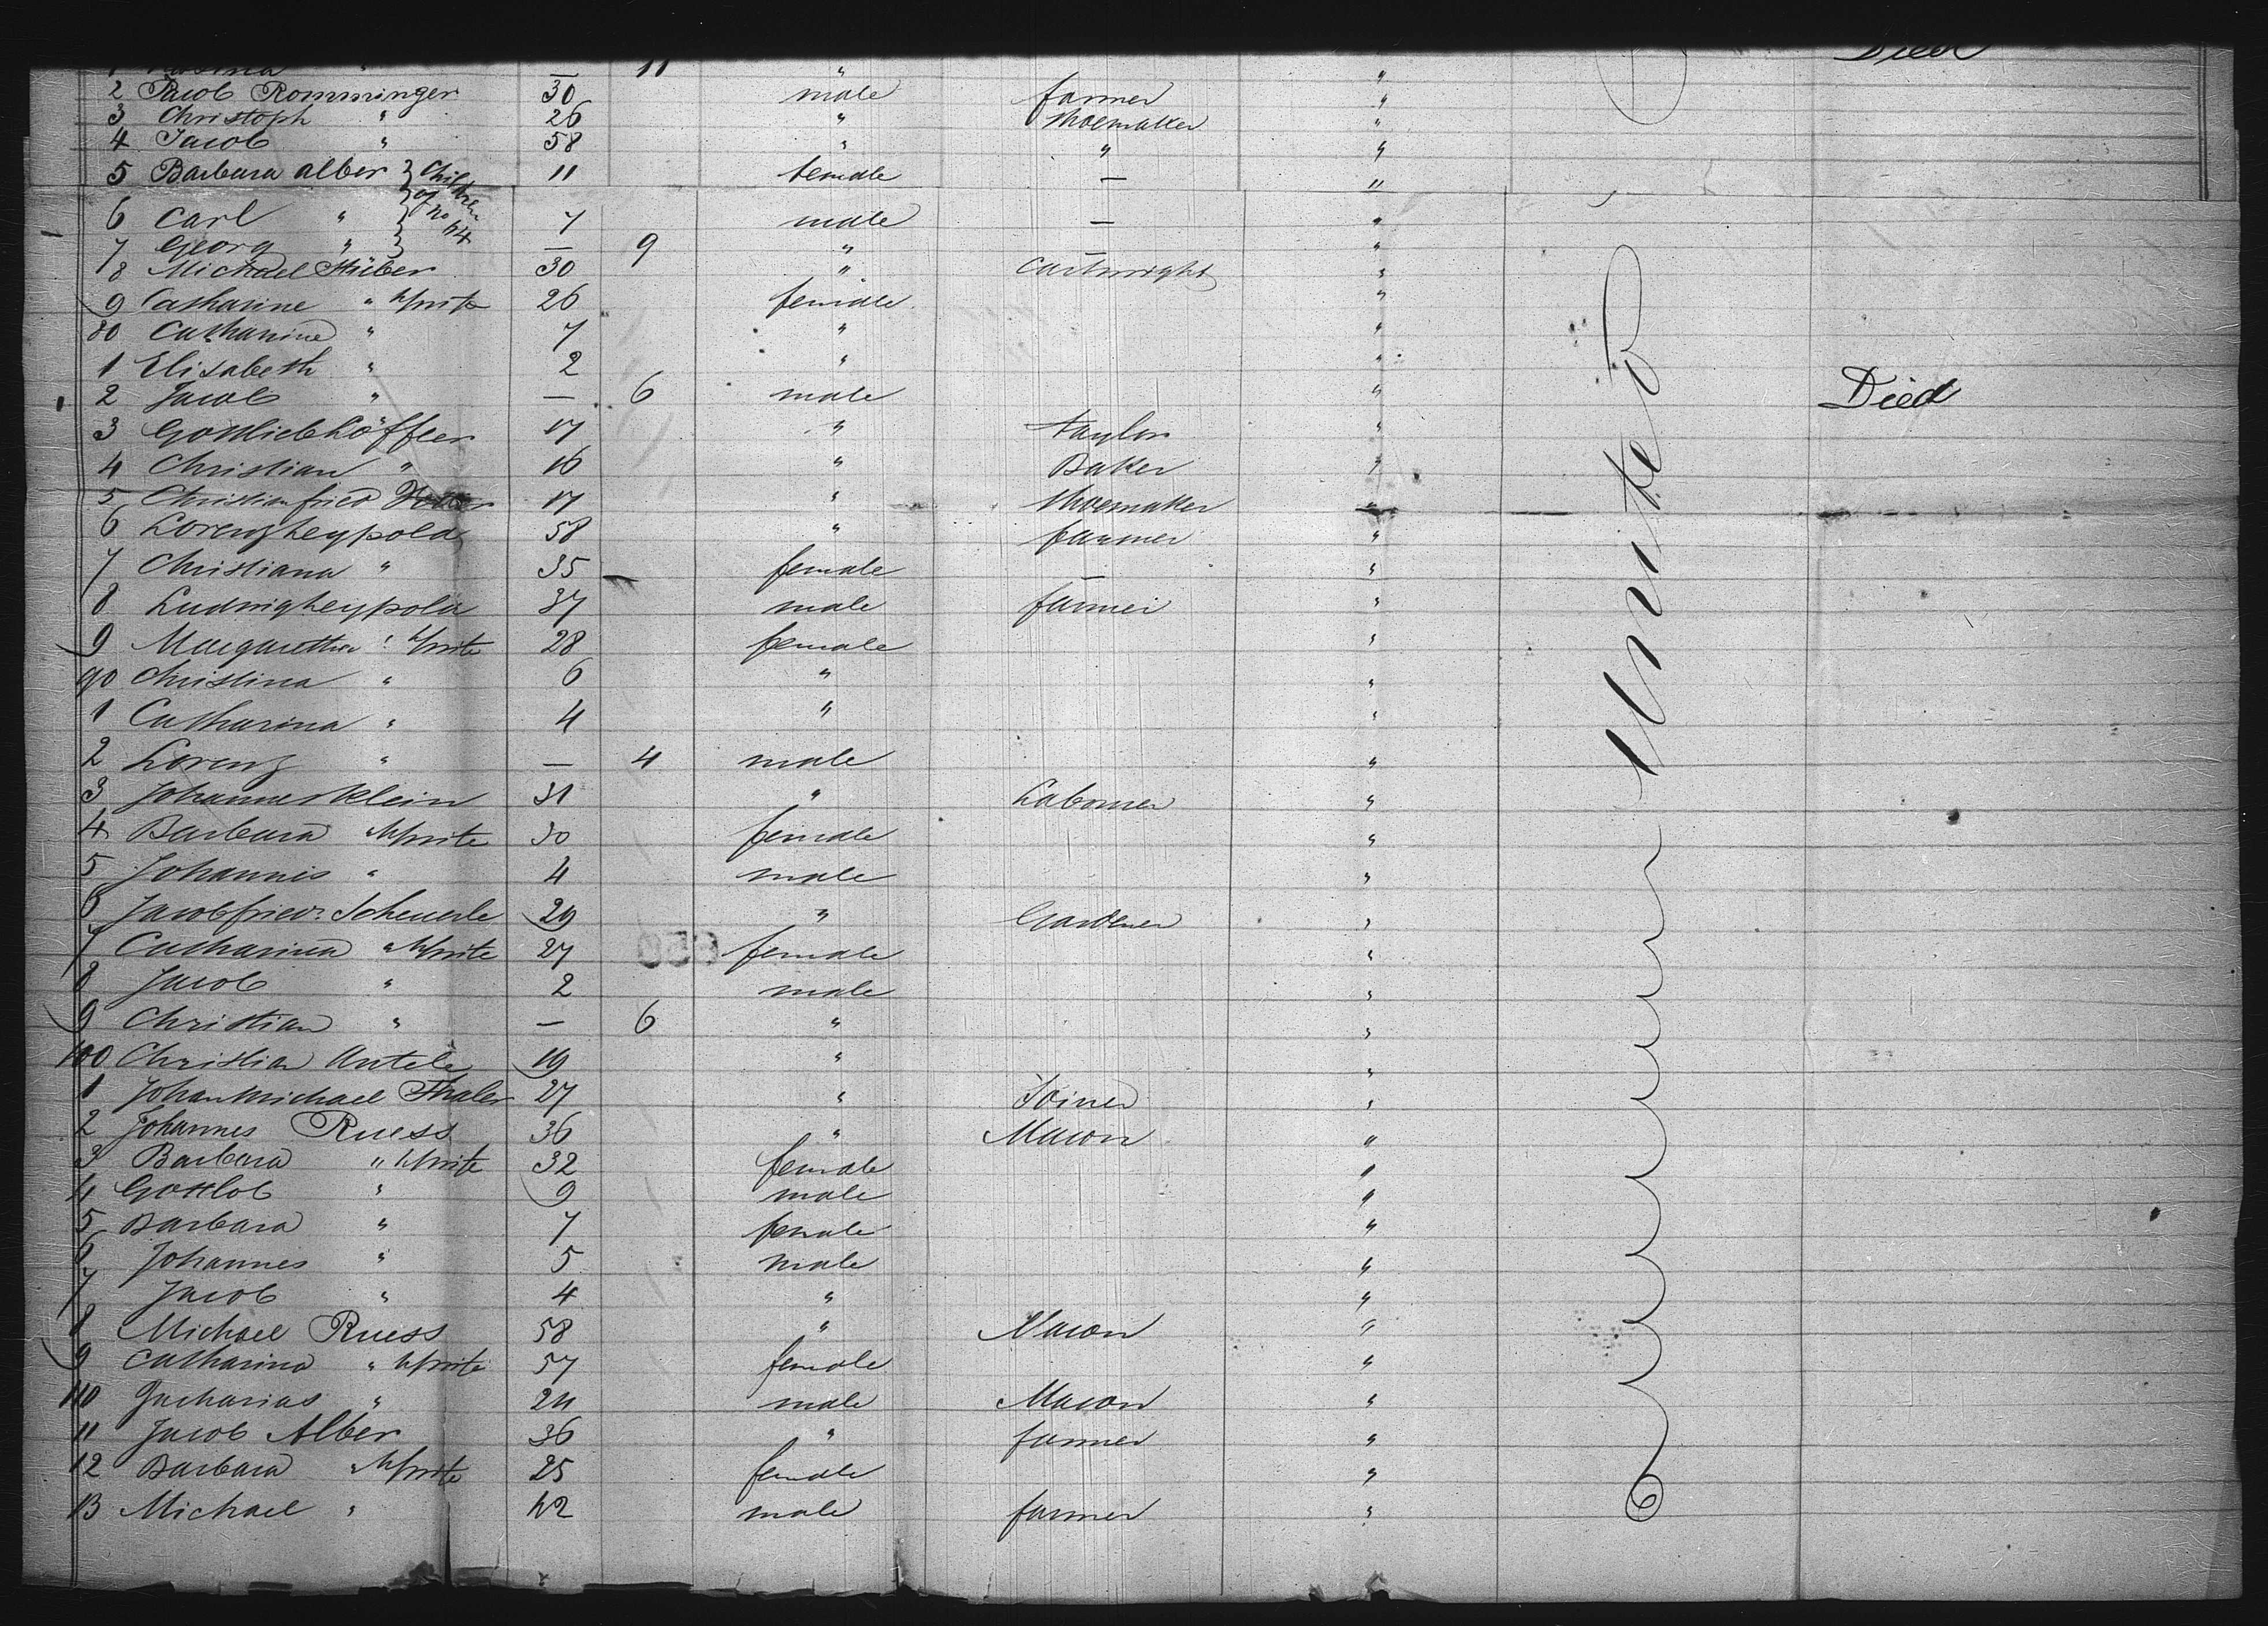 11 " " Died
2 Jacob Romminger 30 male farmer "
3 Christoph " 26 " shoemaker "
4 Jacob " 58 " " "
5 Barbara Alber } Children 11 female — "
6 Carl " } of No 114 7 male — "
7 Georg " } — 9 " — "
8 Michael Stüber 30 " Cartwright "
9 Catharine " Wife 26 female "
80 Catharine " 7 " "
1 Elisabeth " 2 " "
2 Jacob " — 6 male " Died
3 Gottlieb Löffler 17 " taylor "
4 Christian " 16 " Baker "
5 Christianfried 17 " shoemaker "
6 Lorenz Leypold 58 " farmer "
7 Christiana " 35 female — "
8 Ludwig Leypold 37 male farmer "
9 Margaretha " Wife 28 female "
90 Christina " 6 " "
1 Catharina " 4 " "
2 Lorenz " — 4 male "
3 Johannes Klein 31 " Labourer "
4 Barbara " Wife 30 female "
5 Johannes " 4 male "
6 Jacobfriedr. Scheuerle 29 " Gardener "
7 Catharina " Wife 27 female "
8 Jacob " 2 male "
9 Christian " — 6 " "
100 Christian Antele 19 " "
1 Johan Michael Thaler 27 " Joiner "
2 Johannes Ruess 36 " Mason "
3 Barbara " Wife 32 female "
4 Gottlob " 9 male "
5 Barbara " 7 female "
6 Johannes " 5 male "
7 Jacob " 4 " "
8 Michael Ruess 58 " Mason "
9 Catharina " Wife 57 female "
110 Zacharias " 24 male Mason "
11 Jacob Alber 36 " farmer "
12 Barbara " Wife 25 female "
13 Michael " 42 male farmer "
United